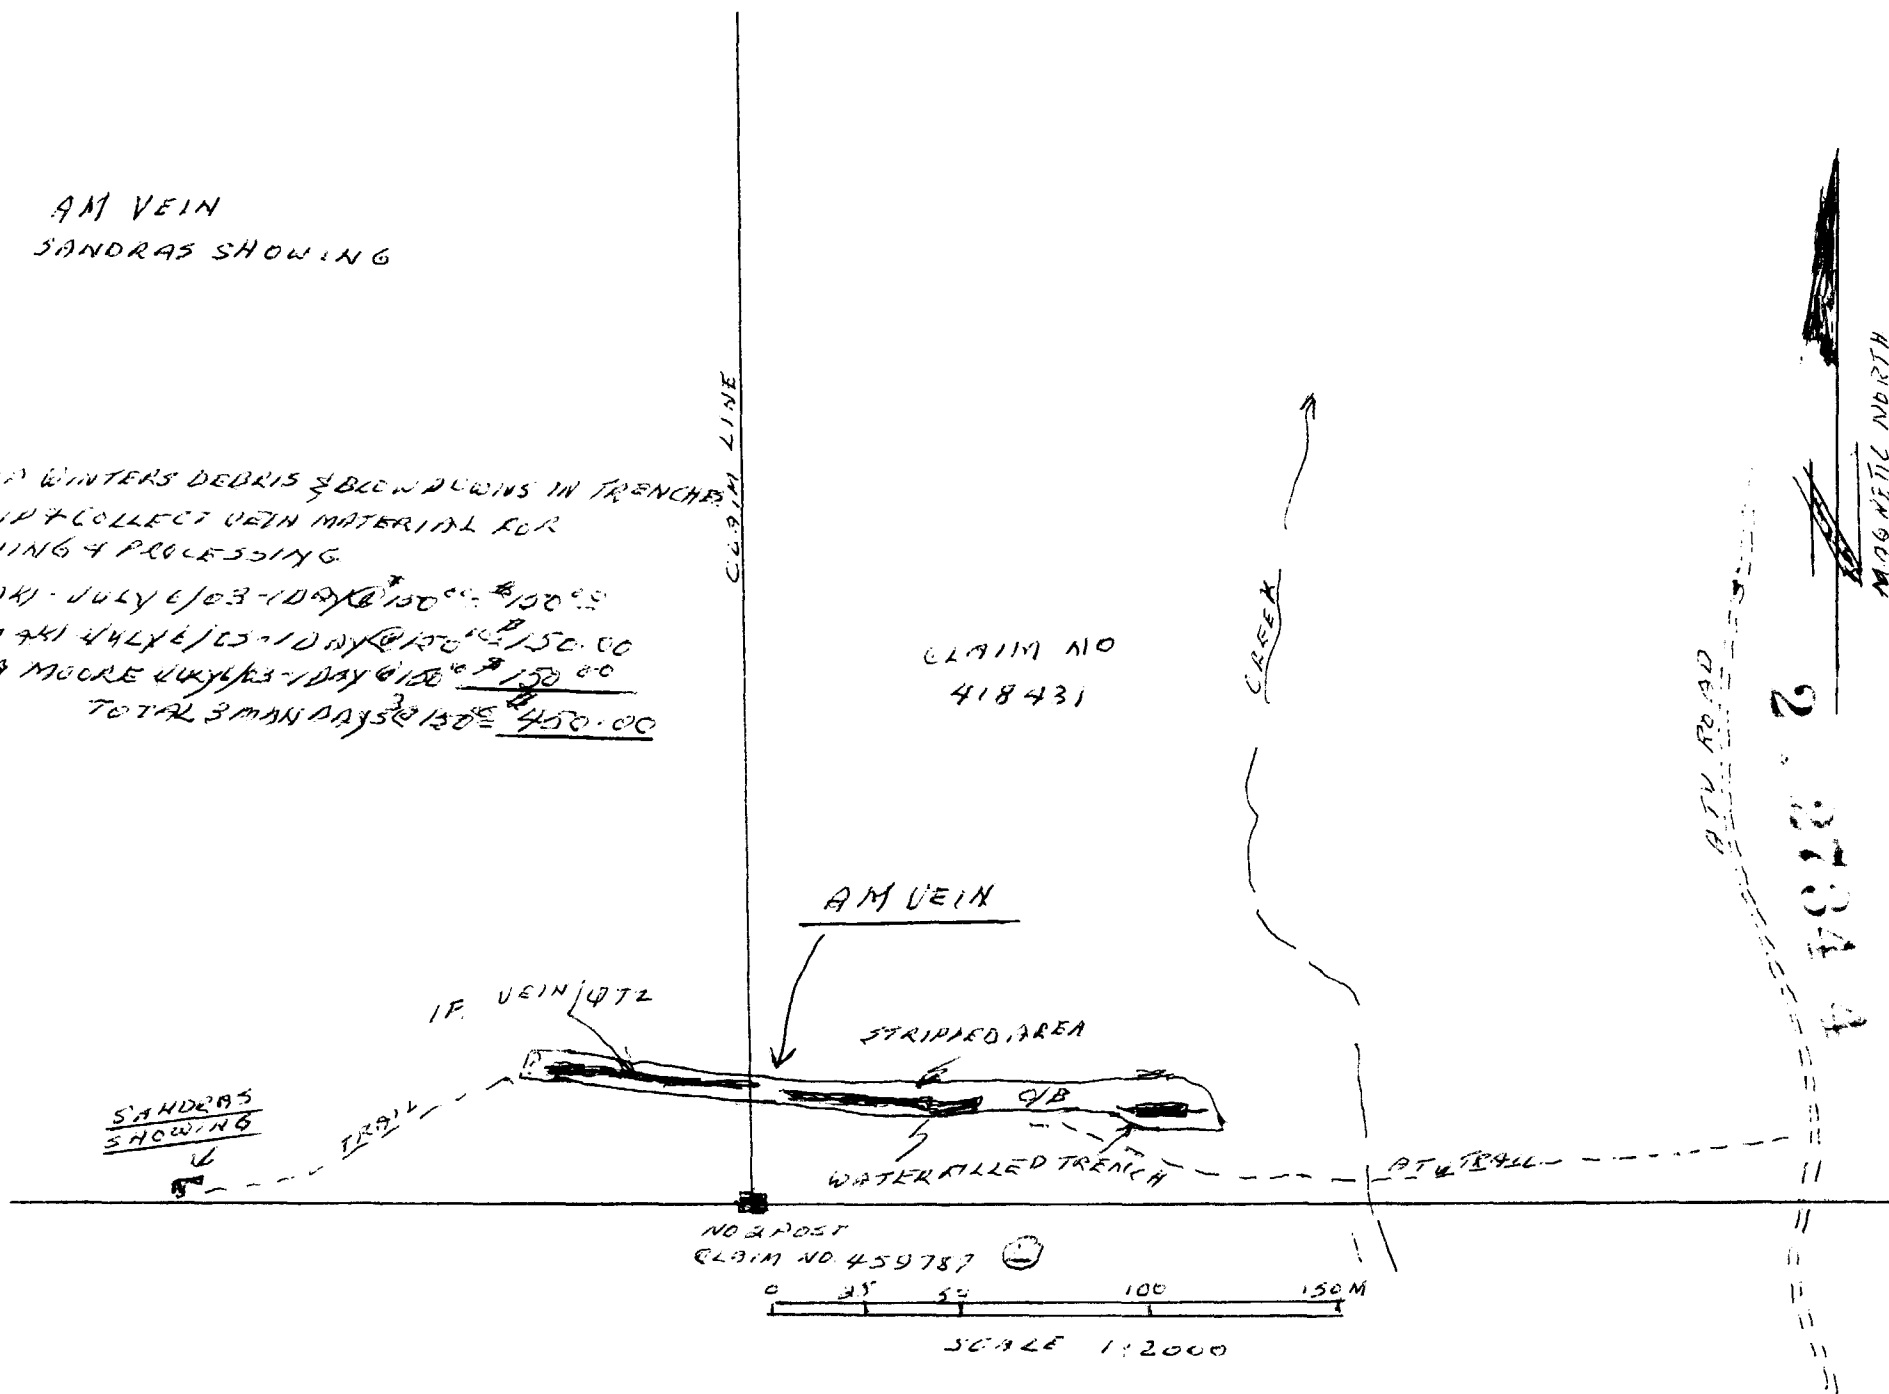 AM VEIN
SANDRAS SHOWING
WINTERS DEBRIS & BLOWDOWNS IN TRENCHES
& COLLECT VEIN MATERIAL FOR
& PROCESSING
JULY 6/03-1DAY@$150.00=$150.00
AKI JULY 6/03-1DAY@150.00=$150.00
MOORE JULY 6/03-1DAY@150.00 $150.00
TOTAL 3 MAN DAYS @150.00= $450.00
CLAIM LINE
CLAIM NO
418431
CREEK
ATV ROAD
MAGNETIC NORTH
2.2734 4
AM VEIN
IF VEIN/QTZ
STRIPPED AREA
O/B
SANDRAS
SHOWING
TRAIL
WATER FILLED TRENCH
ATV TRAIL
NO 2 POST
CLAIM NO. 459787
0 25 50 100 150 M
SCALE 1:2000